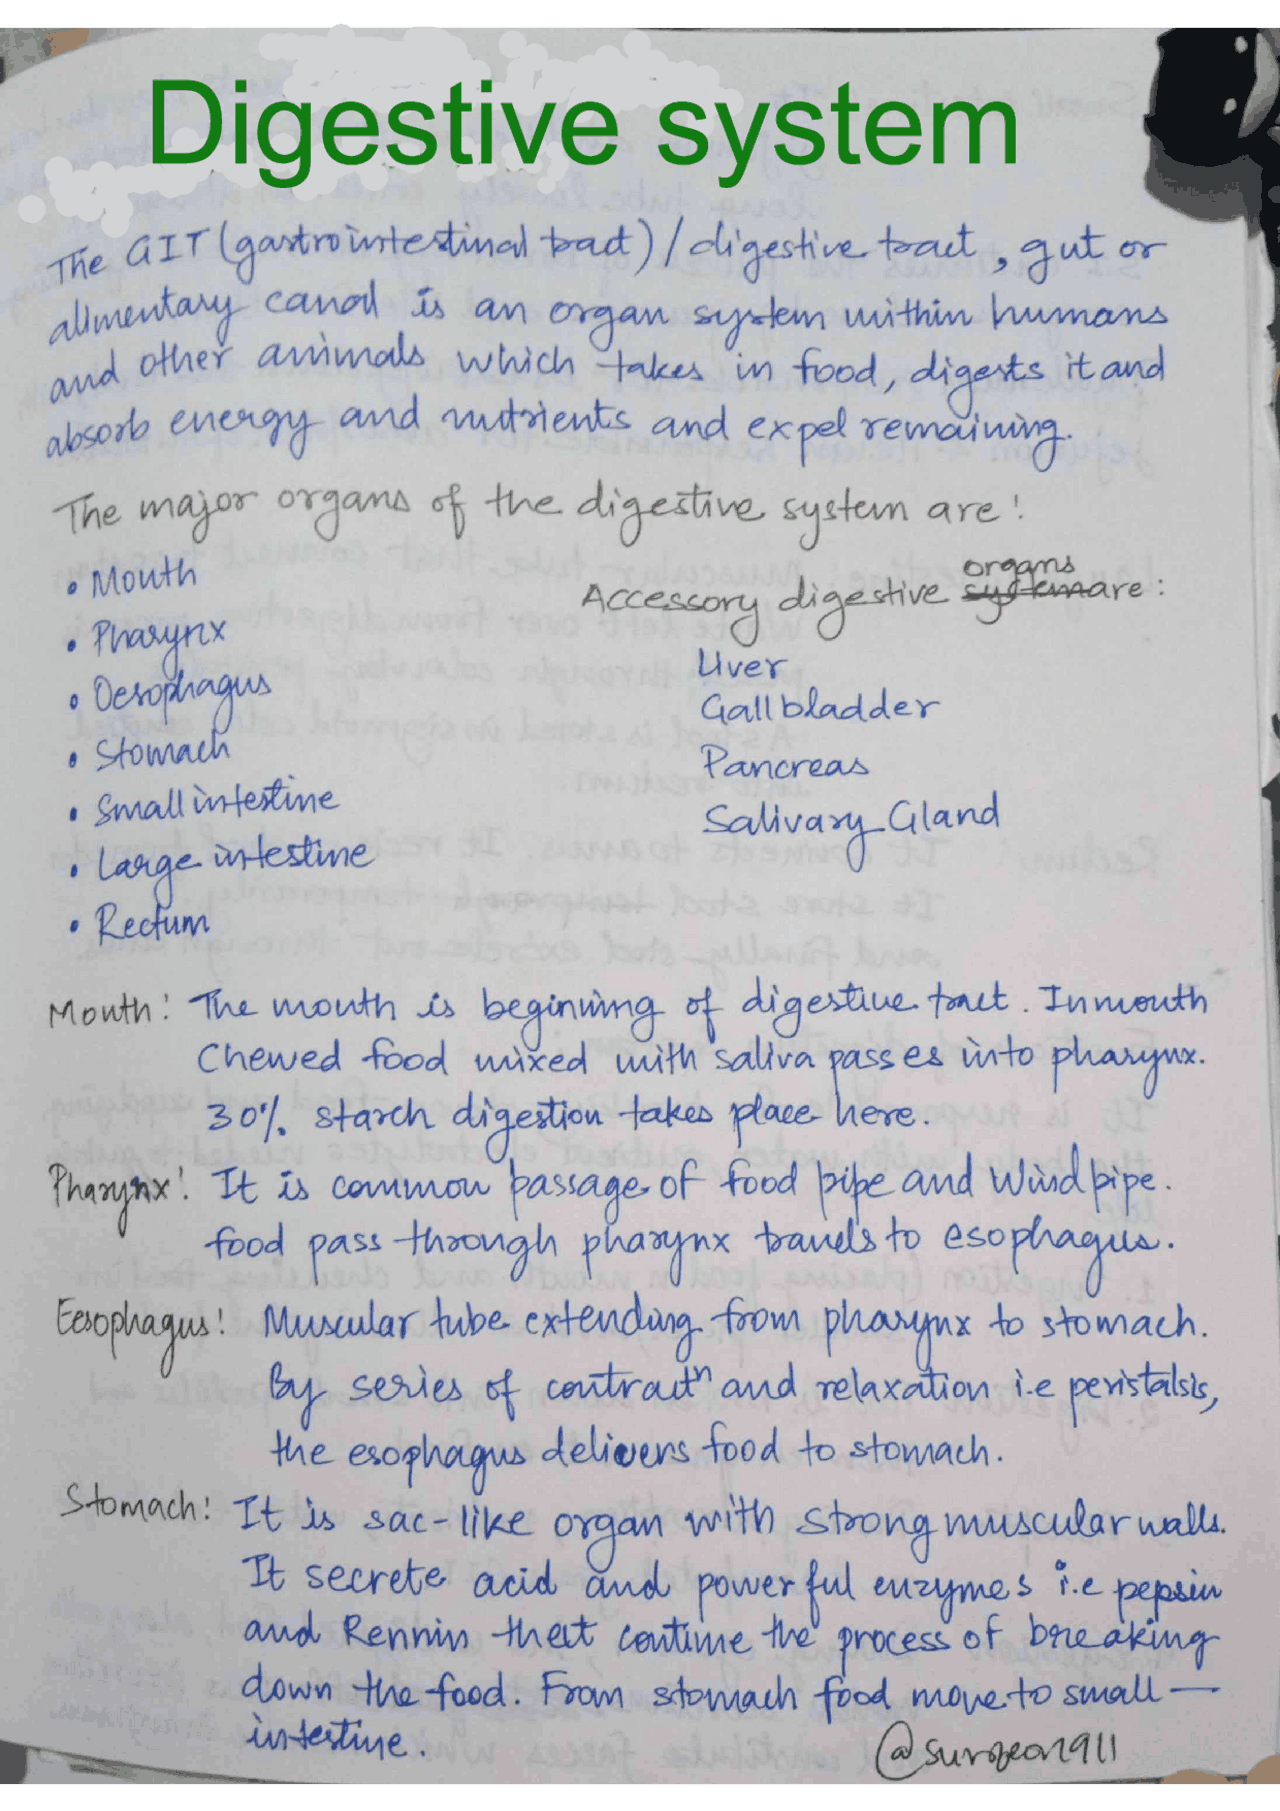 Digestive system
The GIT (gastrointestinal tract) / digestive tract, gut or
alimentary canal is an organ system within humans
and other animals which takes in food, digests it and
absorb energy and nutrients and expel remaining.
The major organs of the digestive system are:
• Mouth
• Pharynx
• Oesophagus
• Stomach
• Small intestine
• Large intestine
• Rectum
Accessory digestive system organs are:
Liver
Gall bladder
Pancreas
Salivary Gland
Mouth: The mouth is beginning of digestive tract. In mouth
Chewed food mixed with saliva passes into pharynx.
30% starch digestion takes place here.
Pharynx: It is common passage of food pipe and Wind pipe.
food pass through pharynx travels to esophagus.
Eesophagus: Muscular tube extending from pharynx to stomach.
By series of contractn and relaxation i.e peristalsis,
the esophagus delivers food to stomach.
Stomach: It is sac-like organ with strong muscular walls.
It secrete acid and powerful enzymes i.e pepsin
and Rennin that continue the process of breaking
down the food. From stomach food move to small —
intestine.
@surgeon911